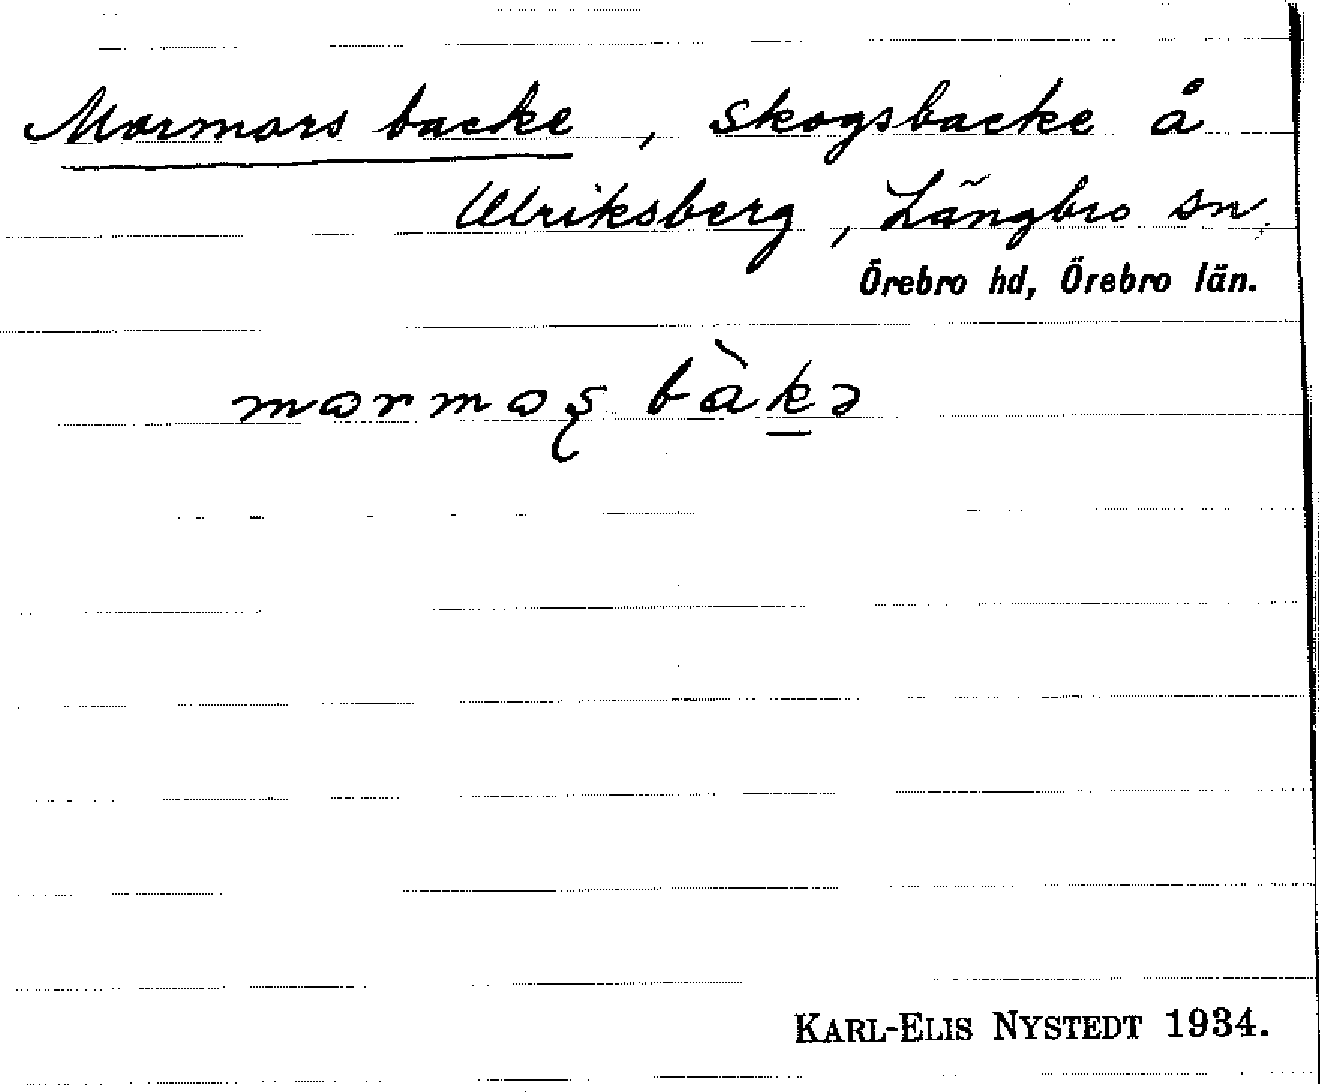 Mormors backe, skogsbacke å
Ulriksberg, Längbro sn
Örebro hd, Örebro län.
mormoʂ bàkə
KARL-ELIS NYSTEDT 1934.